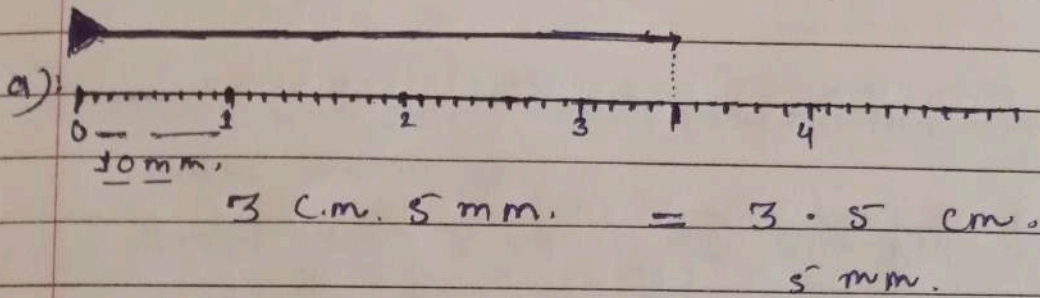 a)
0 1 2 3 4
10 mm.
3 c.m. 5 mm. = 3 . 5 cm.
5 mm.